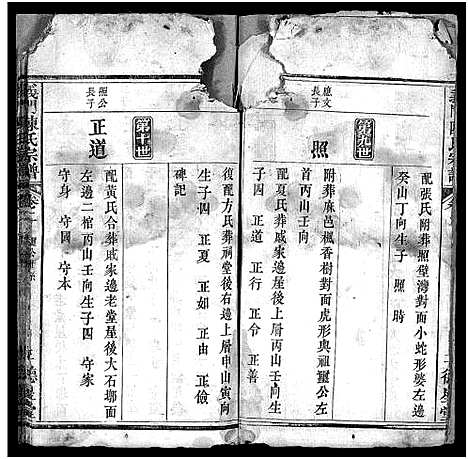 配張氏附葬照壁灣對面小蛇形婆左邊
癸山丁向生子 照 時
第九世
應文
長子
照
附葬麻邑楓香樹對面虎形與祖璽公左
首丙山壬向
配夏氏葬戚家邊屋後上層丙山壬向生
子四 正道 正行 正令 正善
復配方氏葬祠堂後右邊上層申山寅向
生子四 正夏 正如 正由 正儉
碑記
第十世
照公
長子
正道
配黃氏合葬戚家邊老堂屋後大石塝面
左邊二棺丙山壬向生子四 守家
守身 守國 守本
義門陳氏宗譜